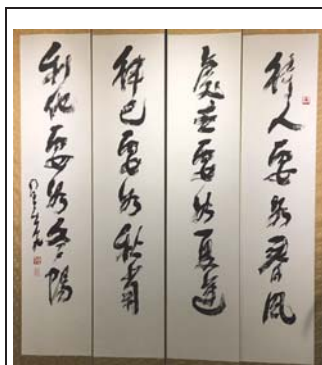 待人要如春風
處世要如夏蓮
律己要如秋霜
利他要如冬陽